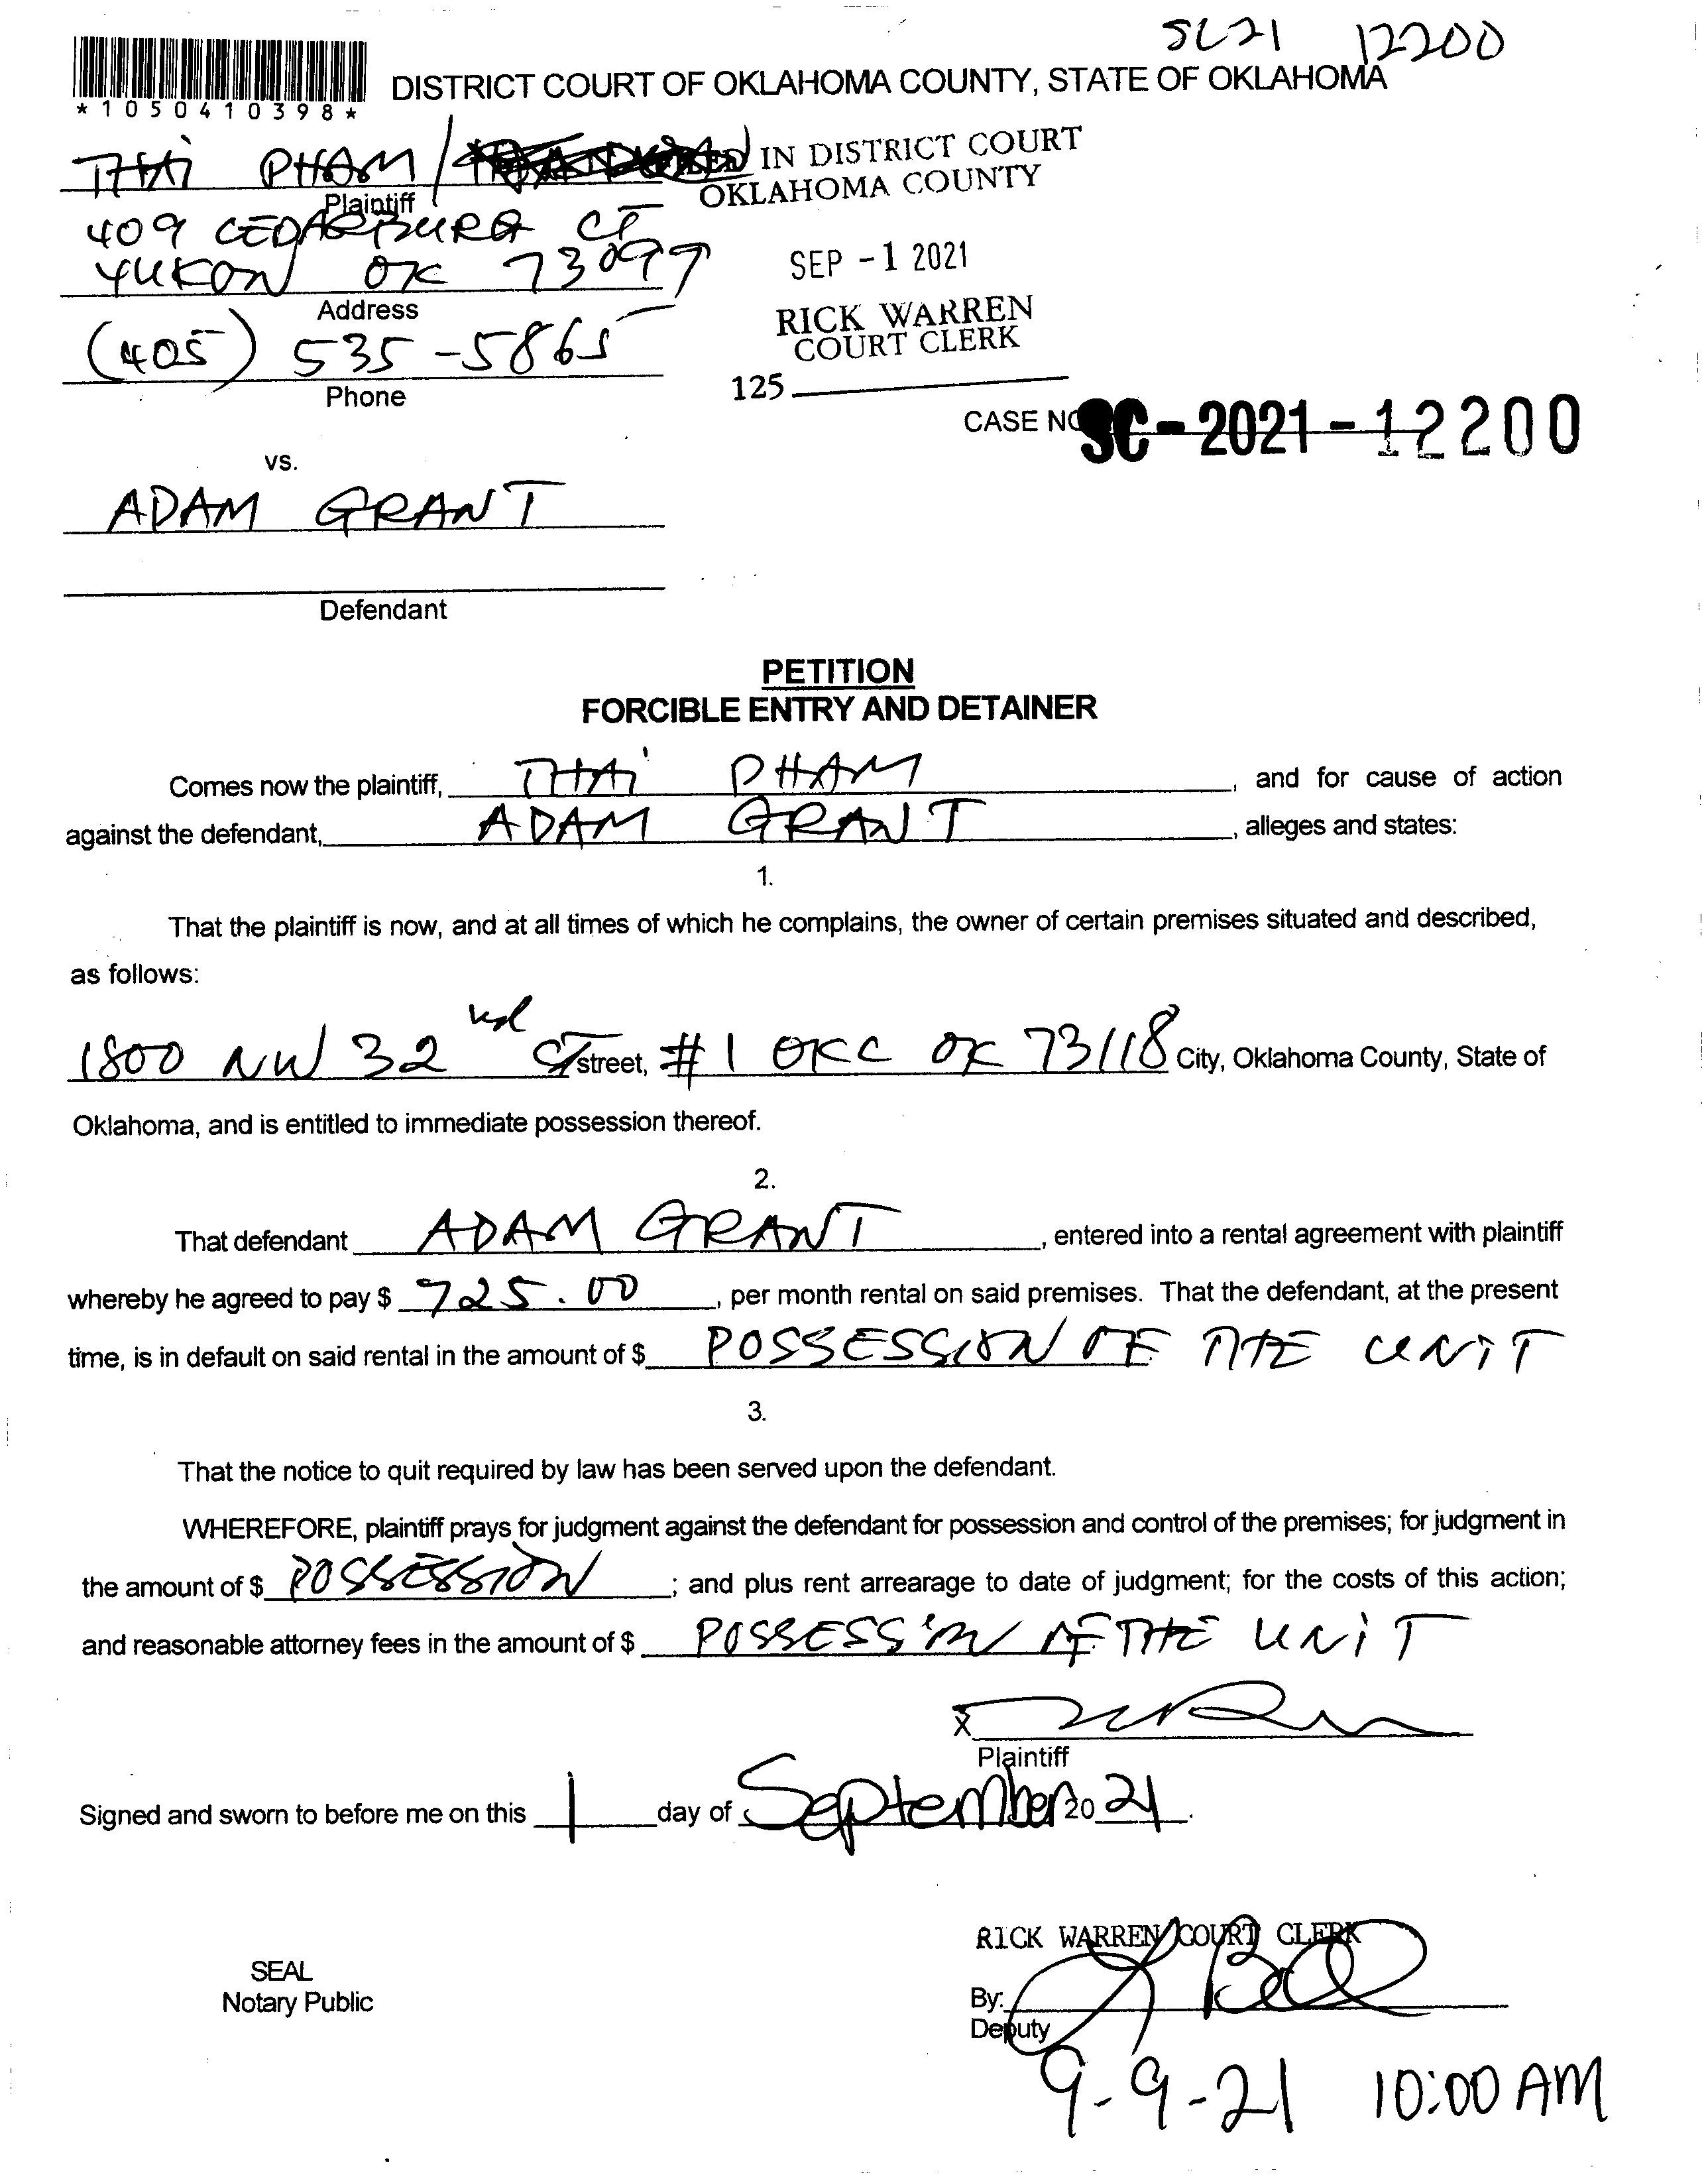 SC21 12200
*1050410398*
DISTRICT COURT OF OKLAHOMA COUNTY, STATE OF OKLAHOMA
THAI PHAM /
IN DISTRICT COURT
OKLAHOMA COUNTY
Plaintiff
409 CEDARBURG CT
YUKON OK 73099
SEP -1 2021
Address
RICK WARREN
COURT CLERK
(405) 535-5865
Phone
125
CASE NO SC-2021-12200
vs.
ADAM GRANT
Defendant
PETITION
FORCIBLE ENTRY AND DETAINER
Comes now the plaintiff, THAI PHAM, and for cause of action
against the defendant, ADAM GRANT, alleges and states:
1.
That the plaintiff is now, and at all times of which he complains, the owner of certain premises situated and described,
as follows:
1800 NW 32nd ST street, #1 OKC OK 73118 City, Oklahoma County, State of
Oklahoma, and is entitled to immediate possession thereof.
2.
That defendant ADAM GRANT, entered into a rental agreement with plaintiff
whereby he agreed to pay $ 725.00, per month rental on said premises. That the defendant, at the present
time, is in default on said rental in the amount of $ POSSESSION OF THE UNIT
3.
That the notice to quit required by law has been served upon the defendant.
WHEREFORE, plaintiff prays for judgment against the defendant for possession and control of the premises; for judgment in
the amount of $ POSSESSION; and plus rent arrearage to date of judgment; for the costs of this action;
and reasonable attorney fees in the amount of $ POSSESSION OF THE UNIT
X
Plaintiff
Signed and sworn to before me on this 1 day of September 20 21.
RICK WARREN COURT CLERK
SEAL
Notary Public
By:
Deputy
9-9-21 10:00 AM